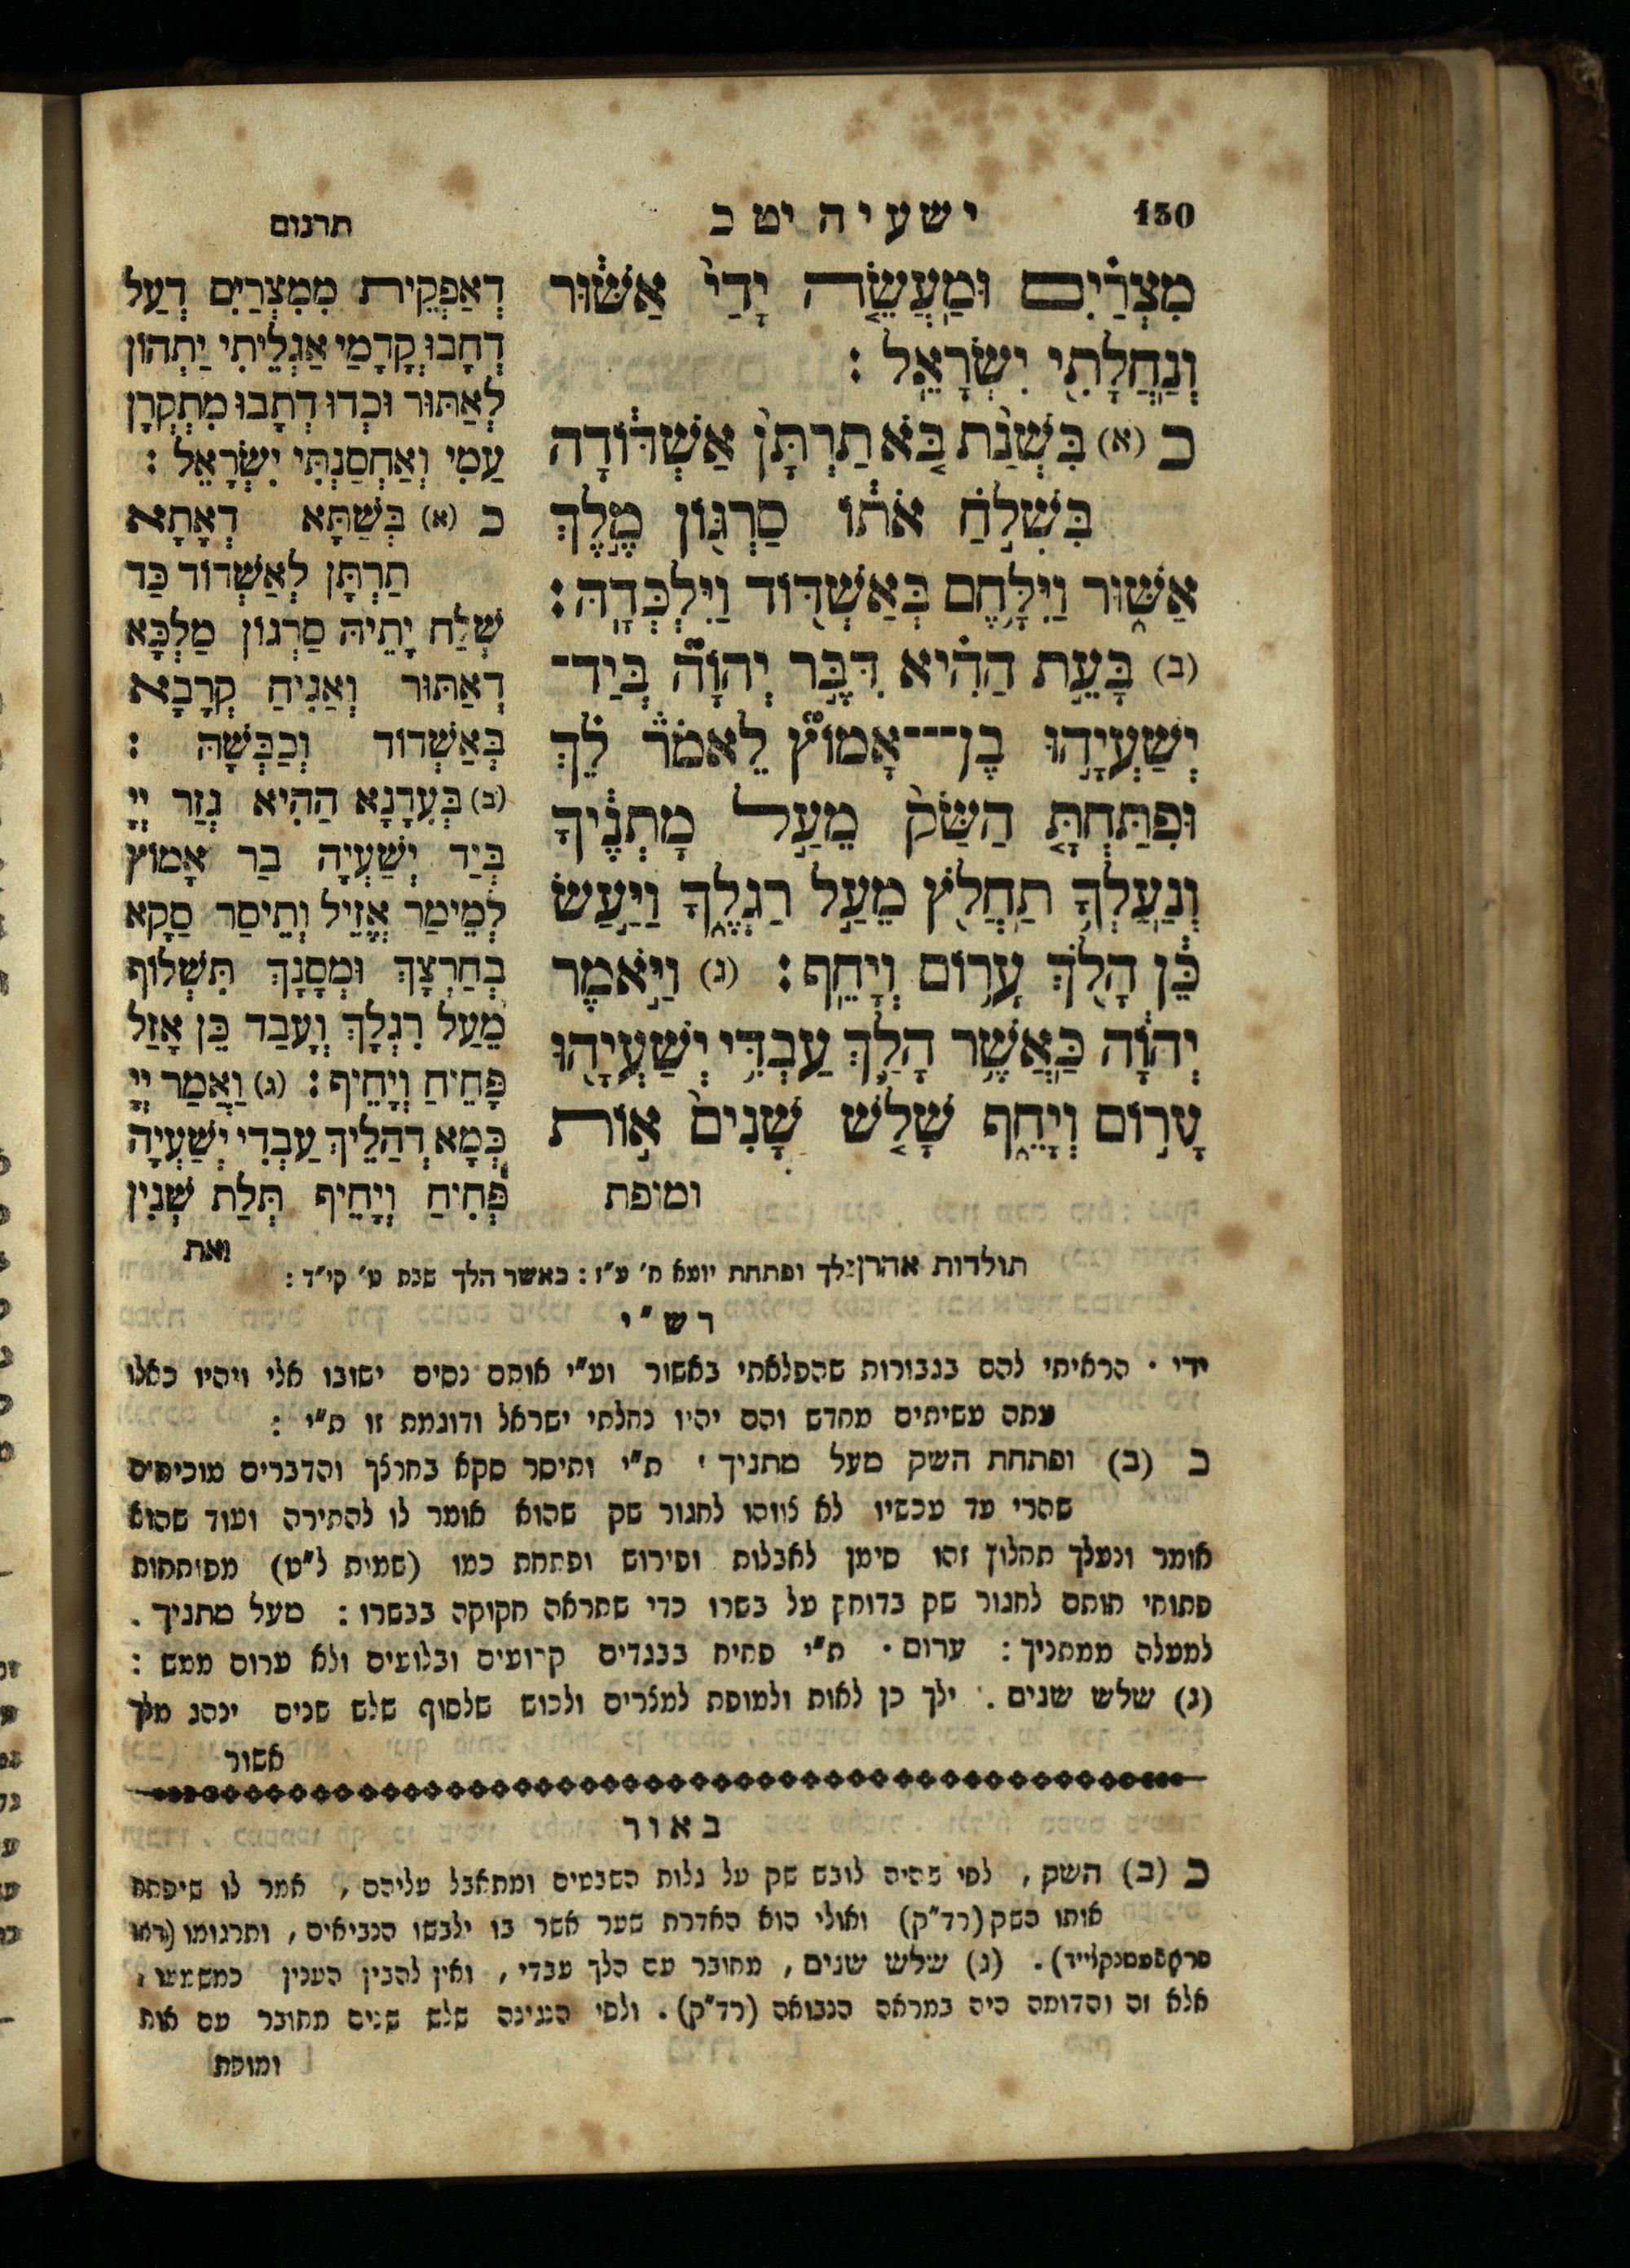 130
ישעיה יט כ
תרגום
מִצְרַ֗יִם וּמַעֲשֵׂ֤ה יָדַי֙ אַשּׁ֔וּר
וְנַחֲלָתִ֖י יִשְׂרָאֵֽל׃
כ (א) בִּשְׁנַ֨ת בֹּ֤א תַרְתָּן֙ אַשְׁדּ֔וֹדָה
בִּשְׁלֹ֣חַ אֹת֔וֹ סַרְג֖וֹן מֶ֣לֶךְ
אַשּׁ֑וּר וַיִּלָּ֥חֶם בְּאַשְׁדּ֖וֹד וַֽיִּלְכְּדָֽהּ׃
(ב) בָּעֵ֣ת הַהִ֗יא דִּבֶּ֣ר יְהוָה֮ בְּיַד־
יְשַׁעְיָ֣הוּ בֶן־־־אָמוֹץ֮ לֵאמֹר֒ לֵ֗ךְ
וּפִתַּחְתָּ֤ הַשַּׂק֙ מֵעַ֣ל מָתְנֶ֔יךָ
וְנַעַלְךָ֥ תַחֲלֹ֖ץ מֵעַ֣ל רַגְלֶ֑ךָ וַיַּ֣עַשׂ
כֵּ֔ן הָלֹ֖ךְ עָר֥וֹם וְיָחֵֽף׃ (ג) וַיֹּ֣אמֶר
יְהוָ֔ה כַּאֲשֶׁ֥ר הָלַ֛ךְ עַבְדִּ֥י יְשַׁעְיָ֖הוּ
עָר֣וֹם וְיָחֵ֑ף שָׁלֹ֤שׁ שָׁנִים֙ א֣וֹת
ומופת
דְאַפְּקֵית מִמִצְרַיִם דְעַל
דְחָבוּ קָדָמַי אַגְלֵיתִי יַתְהוֹן
לְאַתּוּר וּכְדוּ דְתָבוּ מִתְקְרָן
עַמִי וְאַחְסַנְתִּי יִשְׂרָאֵל׃
כ (א) בְּשַׁתָּא דְאָתָא
תַרְתָּן לְאַשְׁדוֹד כַּד
שְׁלַח יָתֵיהּ סַרְגוֹן מַלְכָּא
דְאַתּוּר וְאַגִיחַ קְרָבָא
בְּאַשְׁדוֹד וְכַבְּשָׁהּ׃
(ב) בְּעִדָנָא הַהִיא גְזַר יְיָ
בְּיַד יְשַׁעְיָה בַר אָמוֹץ
לְמֵימַר אֱזֵיל וְתֵיסַר סַקָא
בְחַרְצָךְ וּמְסָנָךְ תִּשְׁלוֹף
מֵעַל רִגְלָךְ וַעֲבַד כֵּן אָזַל
פָּחֵיחַ וְיָחֵיף׃ (ג) וַאֲמַר יְיָ
כְּמָא דְהַלֵיךְ עַבְדִי יְשַׁעְיָה
פְּחִיחַ וְיָחֵיף תְּלַת שְׁנִין
ואת
תולדות אהרן לך ופתחת יומא ח׳ ע״ז: כאשר הלך שבת ט׳ קי״ד:
רש״י
ידי . הראיתי להם בגבורות שהפלאתי באשור וע״י אותם נסים ישובו אלי ויהיו כאלו
עתה עשיתים מחדש והם יהיו נחלתי ישראל ודוגמת זו ת״י:
כ (ב) ופתחת השק מעל מתניך. ת״י ותיסר סקא בחרצך והדברים מוכיחים
שהרי עד עכשיו לא צווהו לחגור שק שהוא אומר לו להתירה ועוד שהוא
אומר ונעלך תחלוץ זהו סימן לאבלות ופירוש ופתחת כמו (שמות ל״ט) מפותחות
פתוחי חותם לחגור שק בדוחק על בשרו כדי שתראה חקוקה בבשרו: מעל מתניך.
למעלה ממתניך: ערום. ת״י פחיח בבגדים קרועים ובלועים ולא ערום ממש:
(ג) שלש שנים. ילך כן לאות ולמופת למצרים ולכוש שלסוף שלש שנים ינהג מלך
אשור
באור
כ (ב) השק, לפי שהיה לובש שק על גלות השבטים ומתאבל עליהם, אמר לו שיפתח
אותו השק (רד״ק) ואולי הוא האדרת שער אשר בו ילבשו הנביאים, ותרגומו
(ג) שלש שנים, מחובר עם הלך עבדי, ואין להבין הענין כמשמעו,
אלא זה והדומה היה במראה הנבואה (רד״ק). ולפי הנגינה שלש שנים מחובר עם אות
ומופת